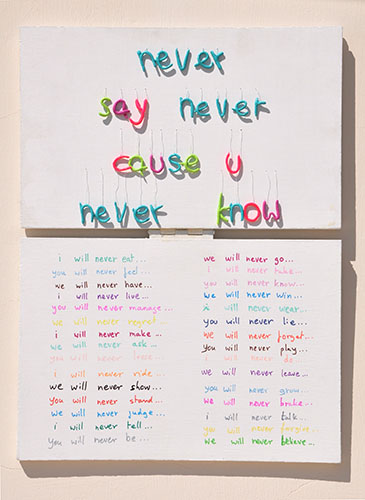 never
say never
cause u
never know
i will never eat...
you will never feel...
we will never have...
i will never live...
you will never manage...
we will never regret...
i will never make...
we will never ask...
you will never
i will never ride...
we will never show...
you will never stand...
we will never judge...
i will never tell...
you will never be...
we will never go...
i will never
you will never know...
we will never win...
i will never wear...
you will never lie...
we will never forget...
you will never play...
i will never do
we will never leave...
you will never grow...
we will never brake...
i will never talk...
you will never forgive...
we will never believe...